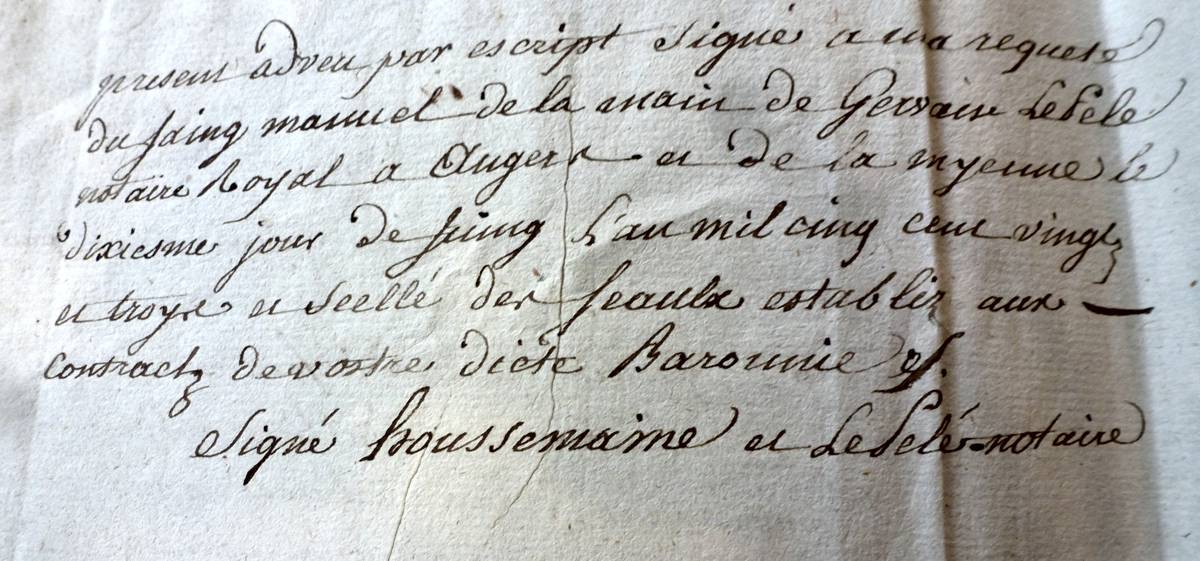 present adveu par escript signé a ma requeste
du saing manuel de la main de Gervais Le Pelé
notaire Royal a Angers et de la myenne le
dixiesme jour de juing l'an mil cinq cent vingt
et troys et scellé des seaulx establiz aux
contractz de vostre dicte Baronnie
Signé houssemaine et Le Pelé notaire